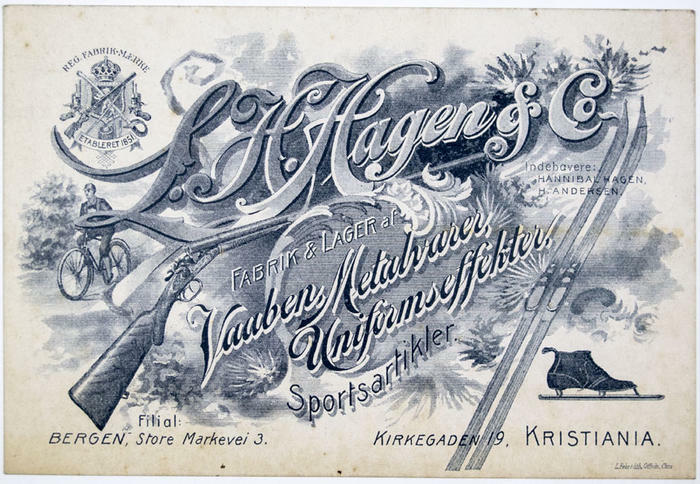 REG. FABRIK-MÆRKE
ETABLERET 1851
L. H. Hagen & Co
Indehavere:
HANNIBAL HAGEN,
H. ANDERSEN.
FABRIK & LAGER af
Vaaben, Metalvarer,
Uniformseffekter,
Sportsartikler.
Filial:
BERGEN, Store Markevei 3.
KIRKEGADEN 19, KRISTIANIA.